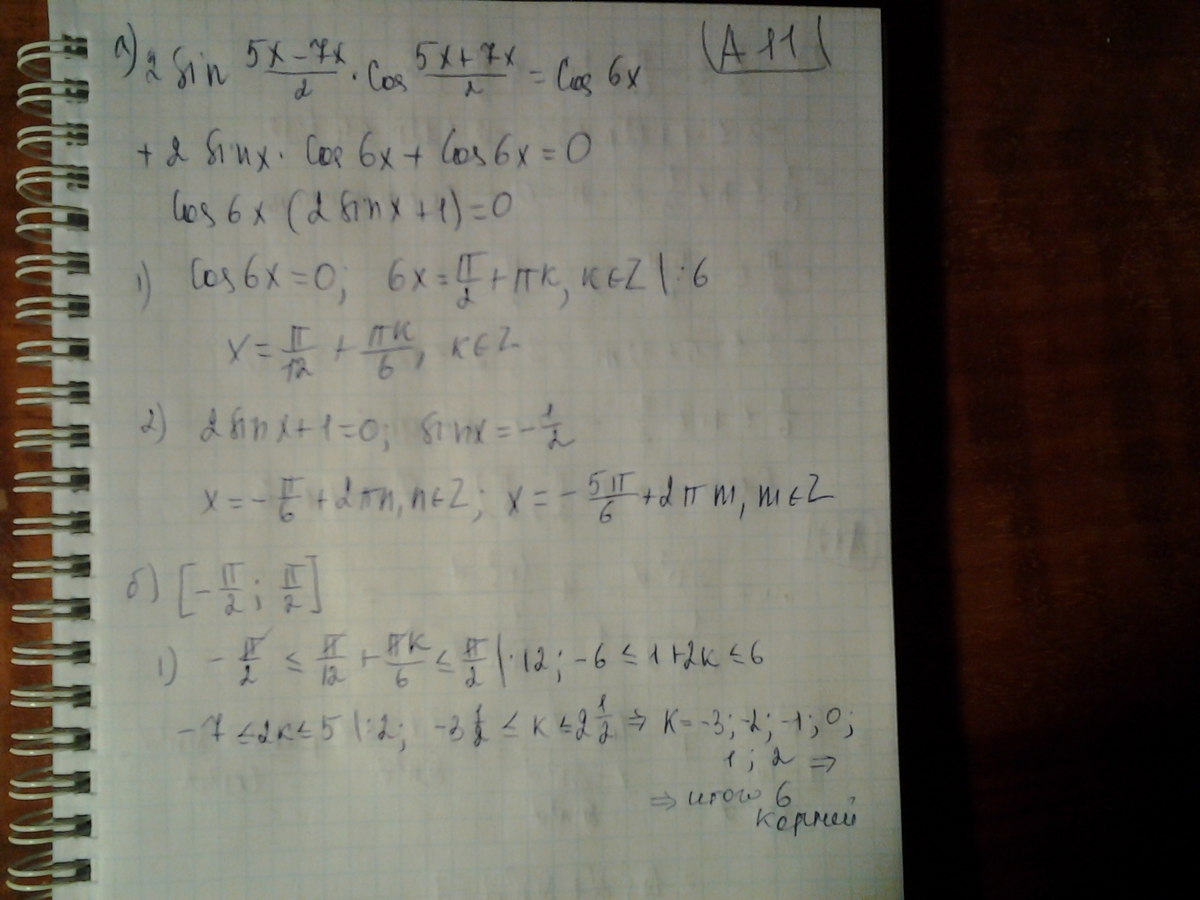 а) 2 sin (5x-7x)/2 · cos (5x+7x)/2 = cos 6x
A 11
+ 2 sin x · cos 6x + cos 6x = 0
cos 6x (2 sin x + 1) = 0
1) cos 6x = 0; 6x = π/2 + πk, k∈Z |:6
x = π/12 + πk/6, k∈Z
2) 2 sin x + 1 = 0; sin x = -1/2
x = -π/6 + 2πn, n∈Z; x = -5π/6 + 2πm, m∈Z
б) [-π/2; π/2]
1) -π/2 ≤ π/12 + πk/6 ≤ π/2 |·12; -6 ≤ 1+2k ≤ 6
-7 ≤ 2k ≤ 5 |:2; -3 1/2 ≤ k ≤ 2 1/2 ⇒ k = -3; -2; -1; 0;
1; 2 ⇒
⇒ итого 6
корней